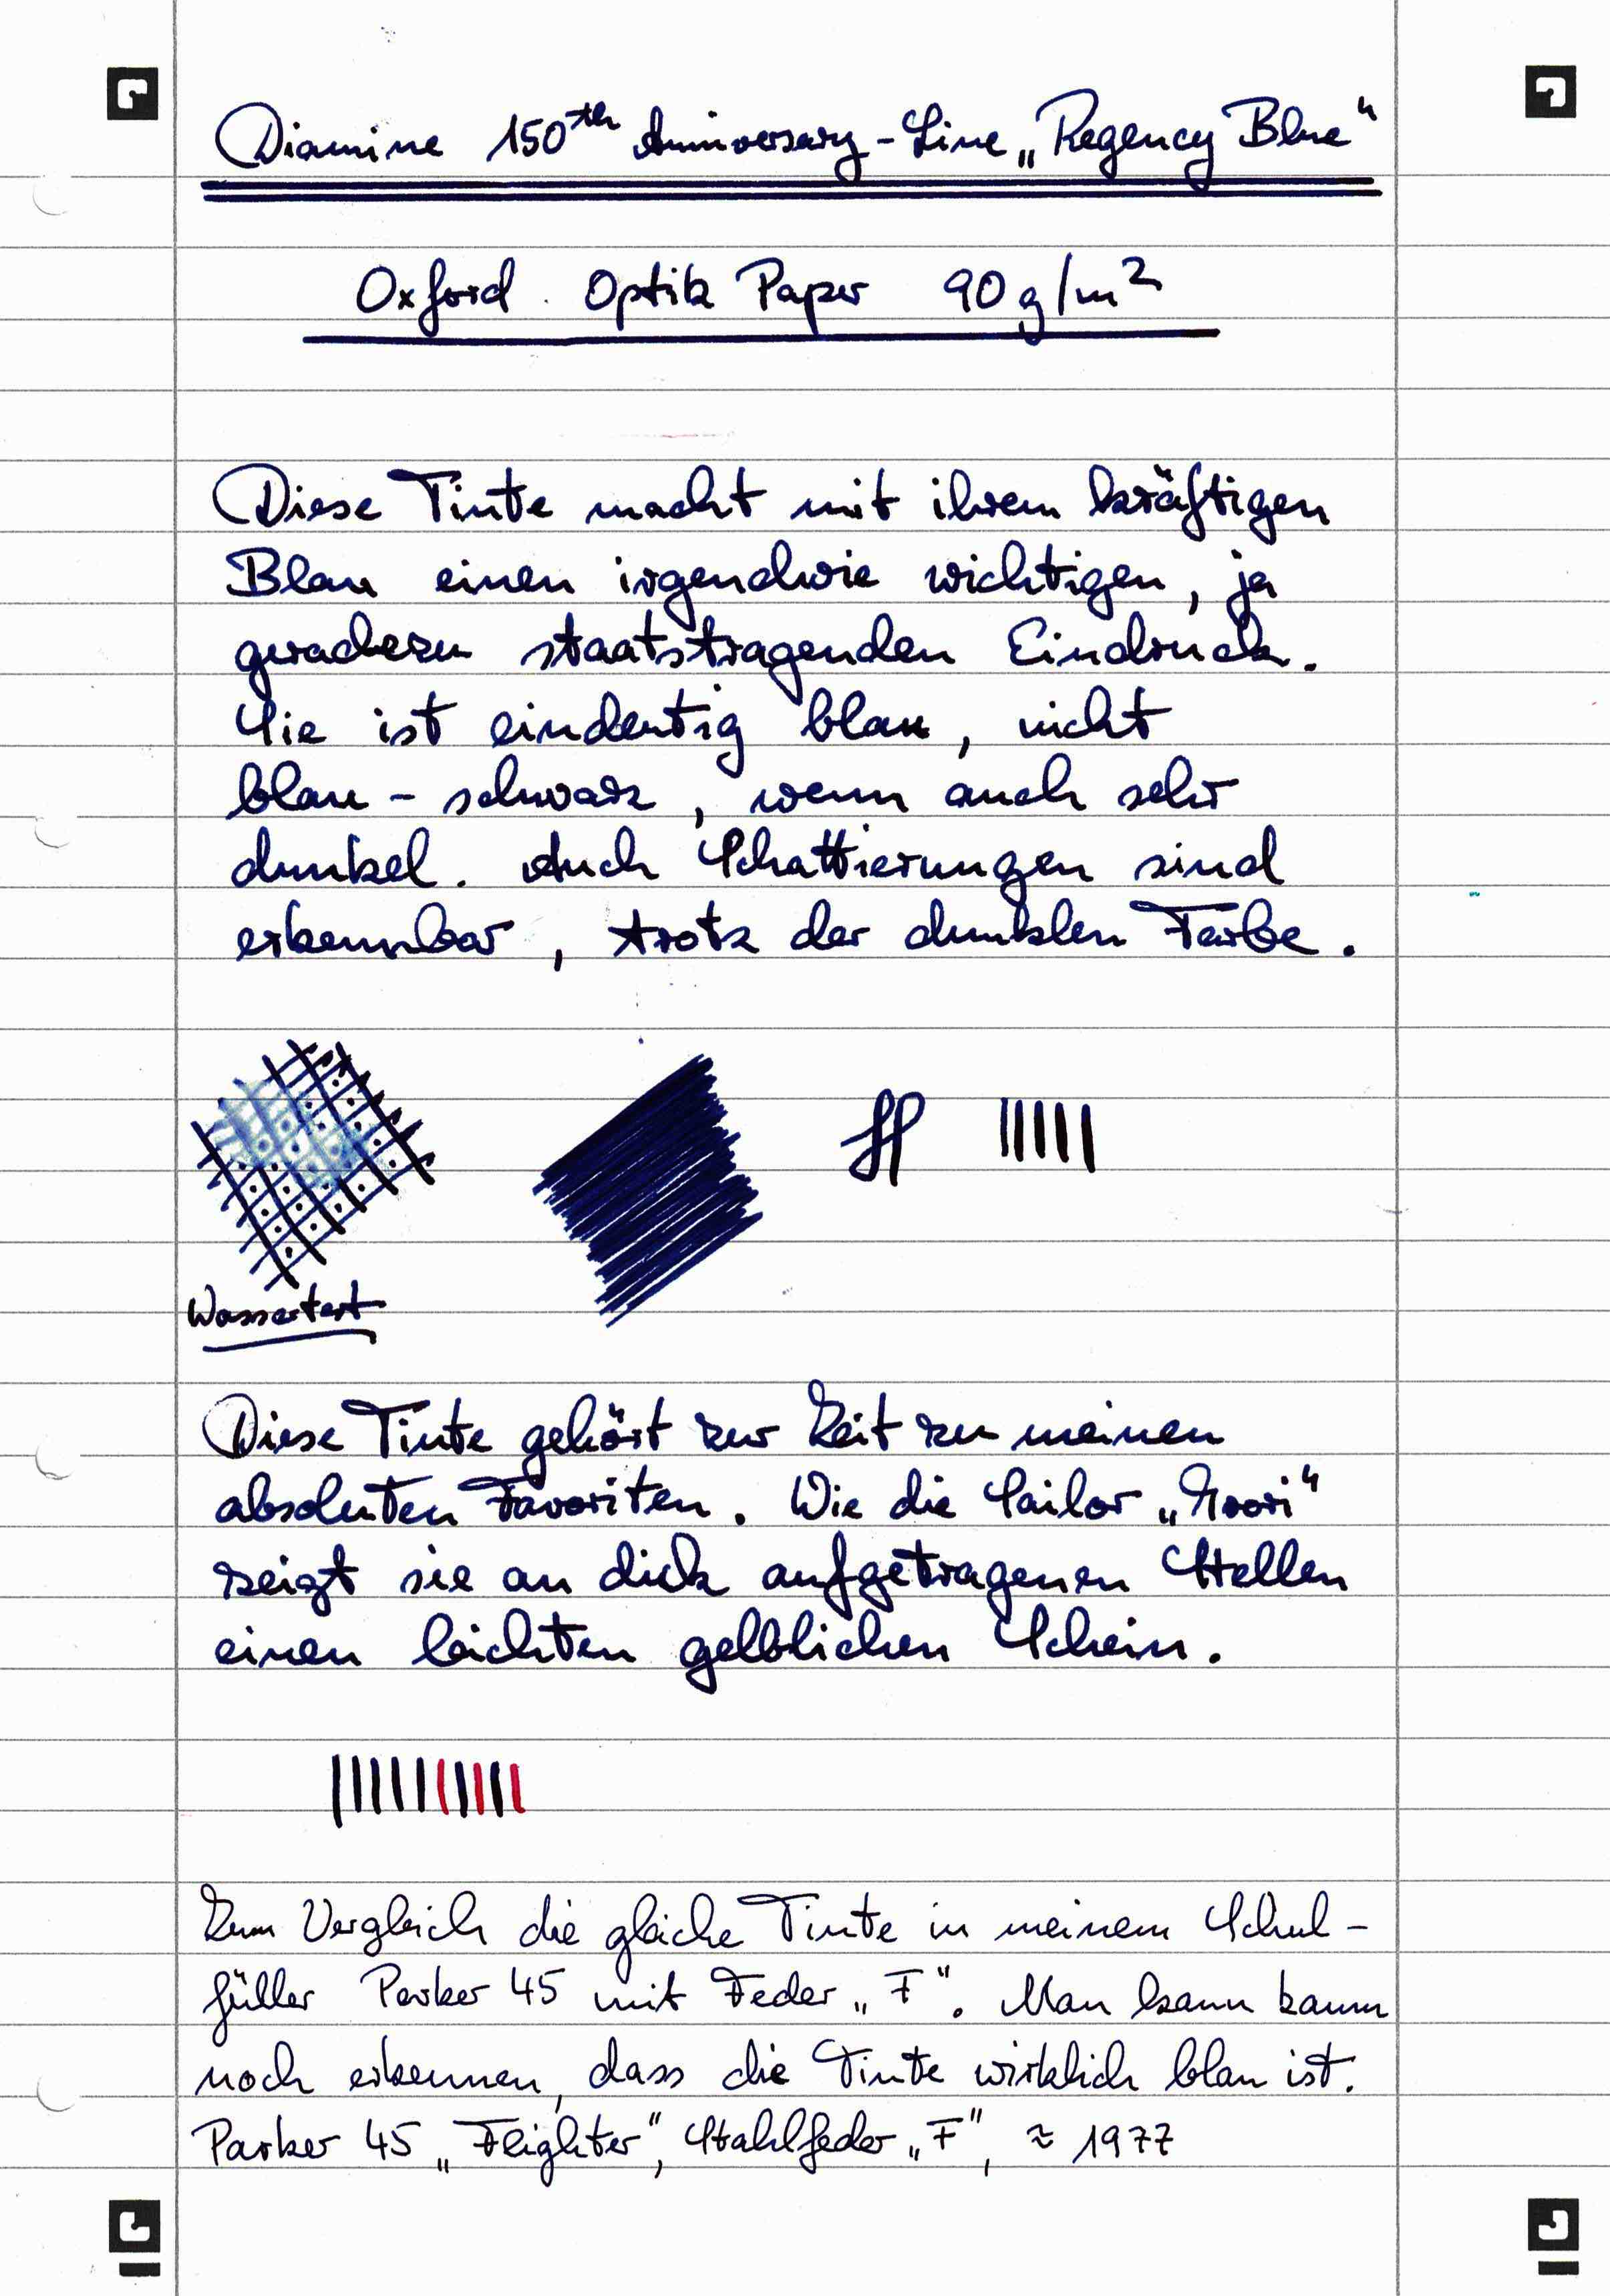 Diamine 150th Anniversary-Line „Regency Blue“
Oxford Optik Paper 90 g/m²
Diese Tinte macht mit ihrem kräftigen
Blau einen irgendwie wichtigen, ja
geradezu staatstragenden Eindruck.
Sie ist eindeutig blau, nicht
blau-schwarz, wenn auch sehr
dunkel. Auch Schattierungen sind
erkennbar, trotz der dunklen Farbe.
Wassertest
Diese Tinte gehört zur Zeit zu meinen
absoluten Favoriten. Wie die Sailor
zeigt sie an dick aufgetragenen Stellen
einen leichten gelblichen Schein.
Zum Vergleich die gleiche Tinte in meinem Schul-
füller Parker 45 mit Feder „F“. Man kann kaum
noch erkennen, dass die Tinte wirklich blau ist.
Parker 45 „Flighter“, Stahlfeder „F“, ≈ 1977